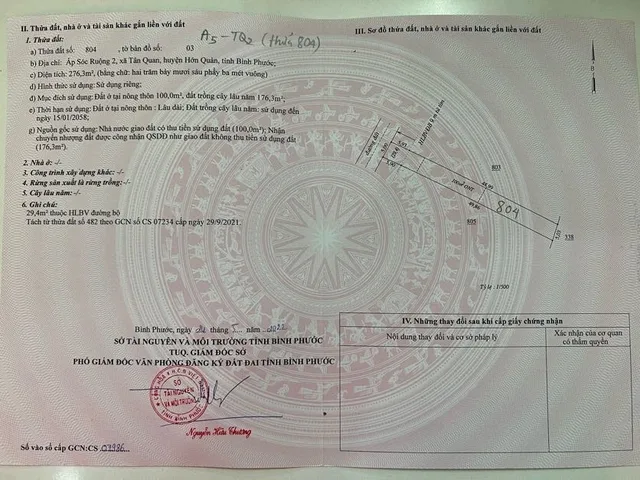 A5-TQ2 (thửa 804)
II. Thửa đất, nhà ở và tài sản khác gắn liền với đất
1. Thửa đất:
a) Thửa đất số: 804, tờ bản đồ số: 03
b) Địa chỉ: Ấp Sóc Ruộng 2, xã Tân Quan, huyện Hớn Quản, tỉnh Bình Phước;
c) Diện tích: 276,3m², (bằng chữ: hai trăm bảy mươi sáu phẩy ba mét vuông)
d) Hình thức sử dụng: Sử dụng riêng;
đ) Mục đích sử dụng: Đất ở tại nông thôn 100,0m², đất trồng cây lâu năm 176,3m²;
e) Thời hạn sử dụng: Đất ở tại nông thôn : Lâu dài; Đất trồng cây lâu năm: sử dụng đến
ngày 15/01/2058;
g) Nguồn gốc sử dụng: Nhà nước giao đất có thu tiền sử dụng đất (100,0m²); Nhận
chuyển nhượng đất được công nhận QSDĐ như giao đất không thu tiền sử dụng đất
(176,3m²).
2. Nhà ở: -/-
3. Công trình xây dựng khác: -/-
4. Rừng sản xuất là rừng trồng: -/-
5. Cây lâu năm: -/-
6. Ghi chú:
29,4m² thuộc HLBV đường bộ
Tách từ thửa đất số 482 theo GCN số CS 07234 cấp ngày 29/9/2021.
Bình Phước, ngày tháng năm 2022
SỞ TÀI NGUYÊN VÀ MÔI TRƯỜNG TỈNH BÌNH PHƯỚC
TUQ. GIÁM ĐỐC SỞ
PHÓ GIÁM ĐỐC VĂN PHÒNG ĐĂNG KÝ ĐẤT ĐAI TỈNH BÌNH PHƯỚC
SỞ
TÀI NGUYÊN
VÀ MÔI TRƯỜNG
TỈNH BÌNH PHƯỚC
Nguyễn Hữu Thương
Số vào sổ cấp GCN:CS 07986
III. Sơ đồ thửa đất, nhà ở và tài sản khác gắn liền với đất
đường đất
5,00
5,00
803
48,99
100m² ONT
49,86
804
805
5,03
338
Tỷ lệ : 1/500
IV. Những thay đổi sau khi cấp giấy chứng nhận
Nội dung thay đổi và cơ sở pháp lý
Xác nhận của cơ quan
có thẩm quyền